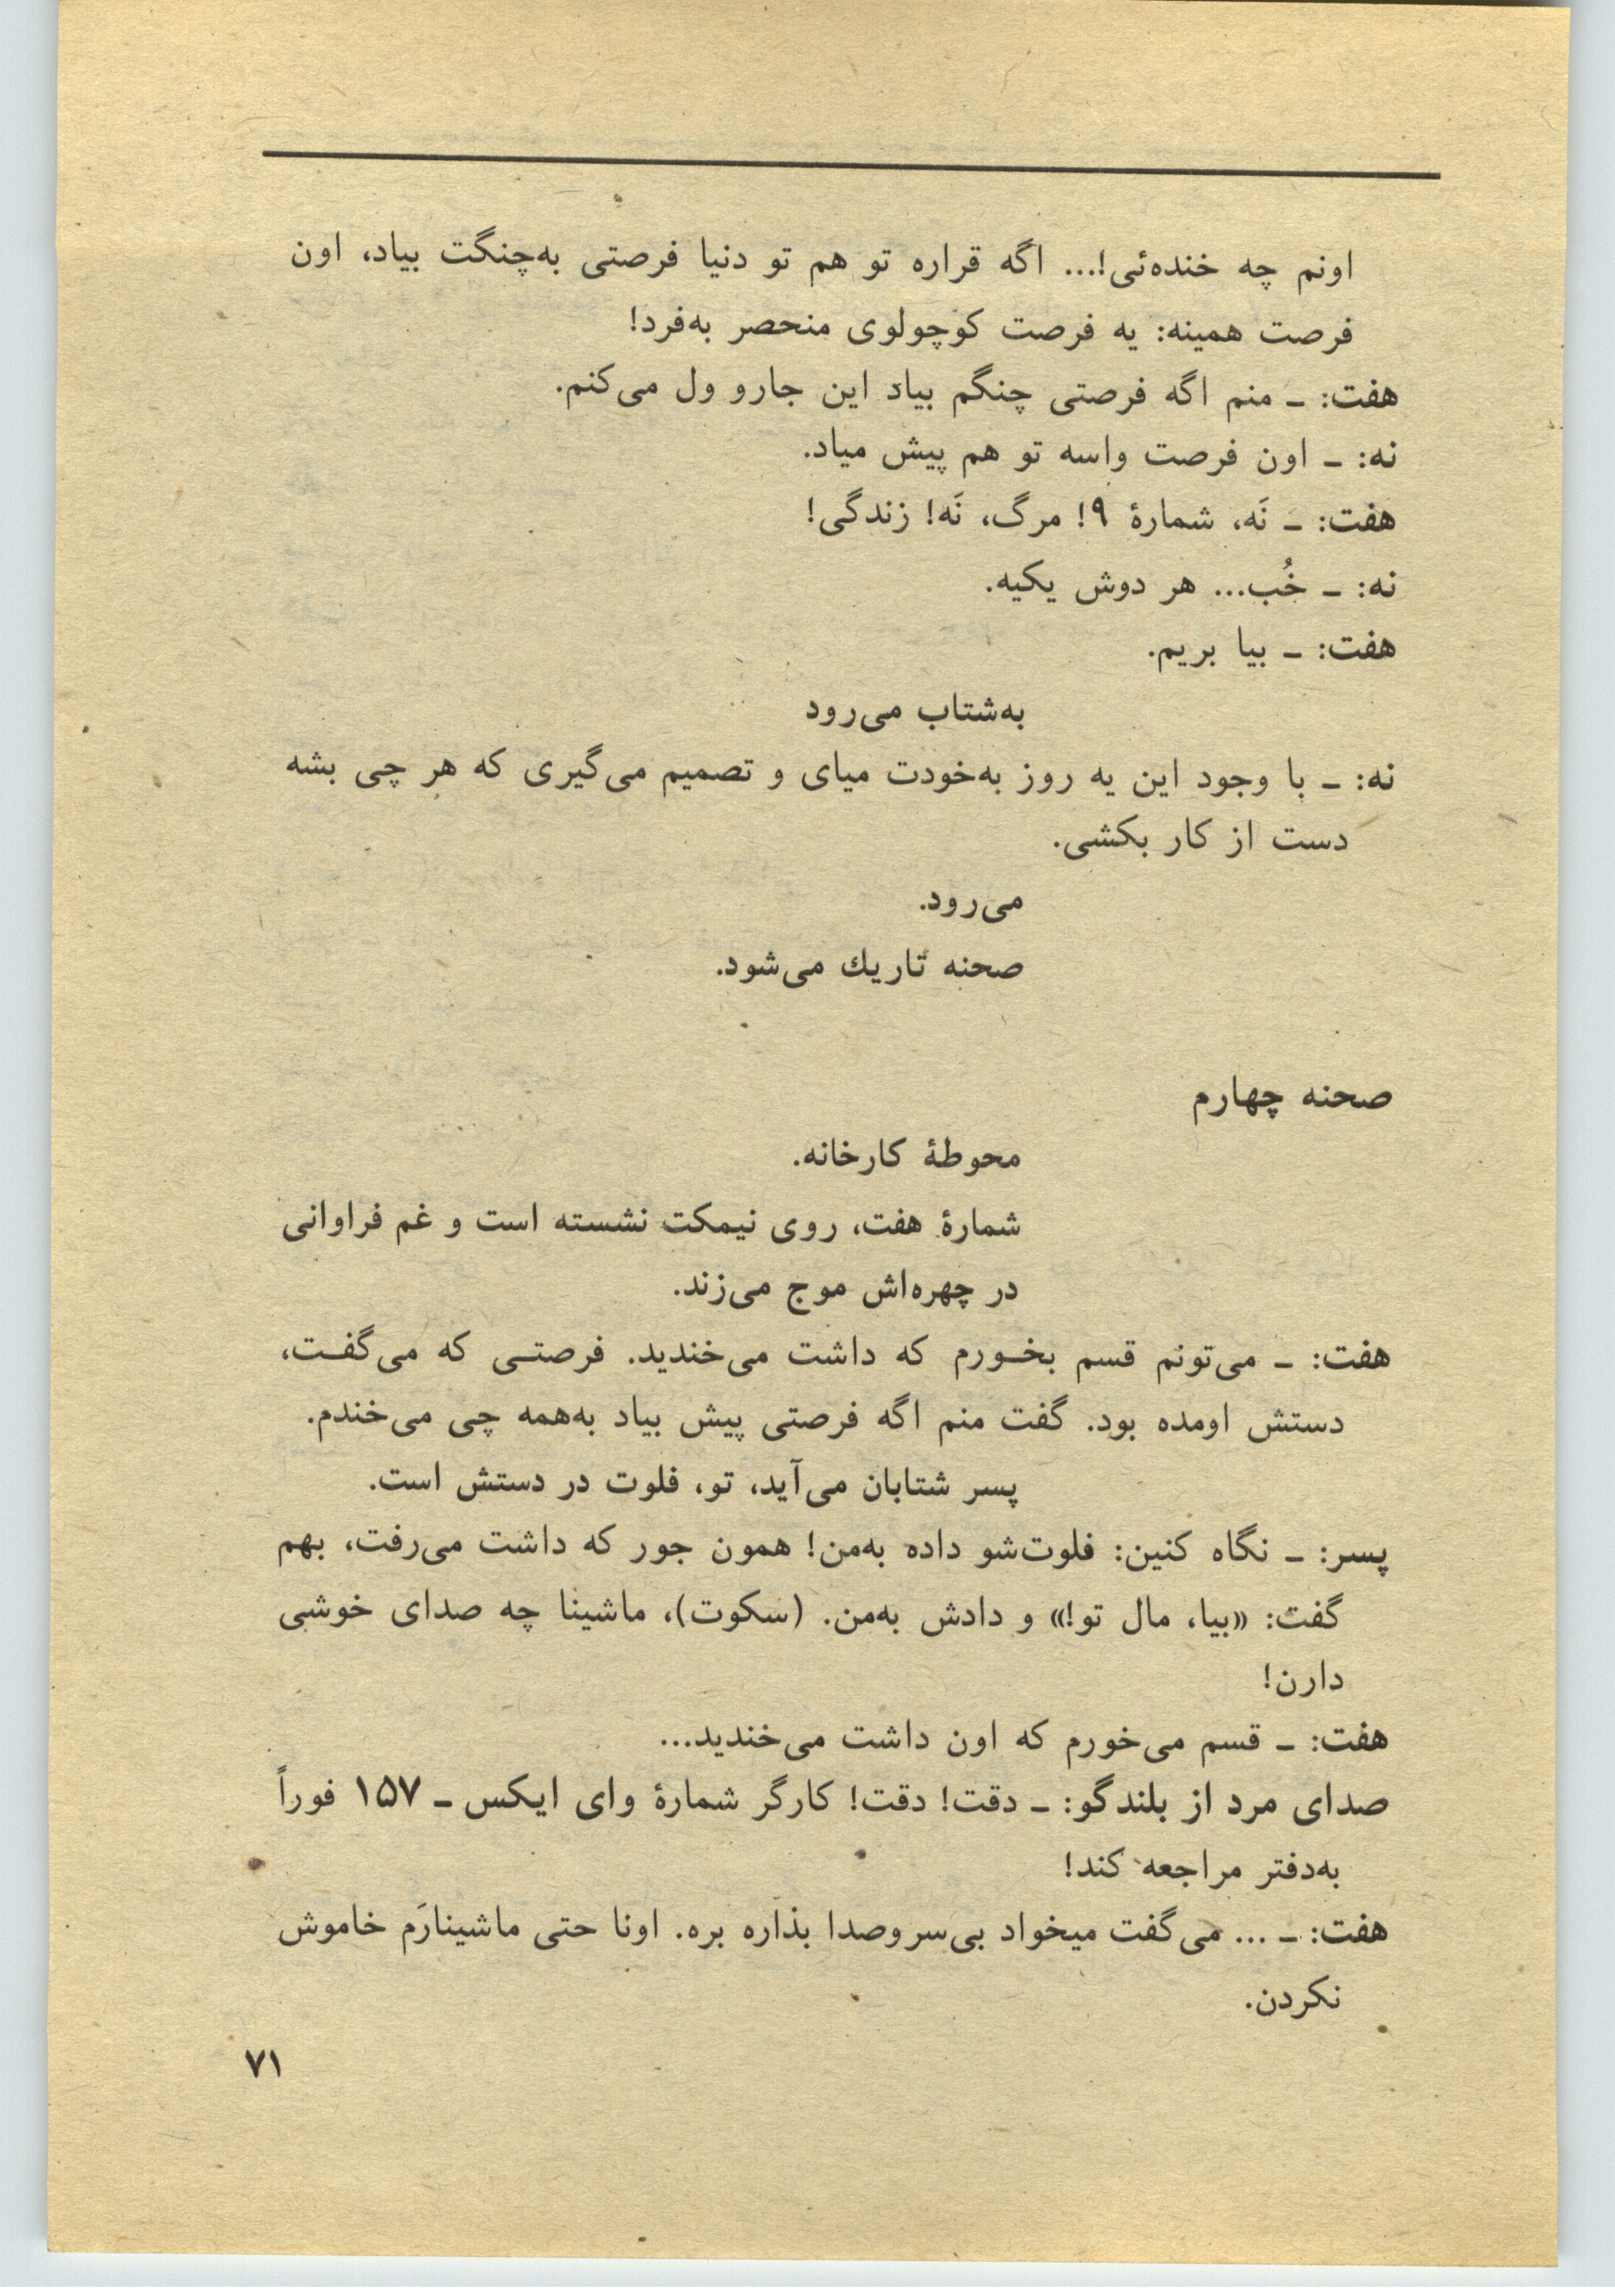 اونم چه خنده‌ئی!... اگه قراره تو هم تو دنیا فرصتی به‌چنگت بیاد، اون
فرصت همینه: یه فرصت کوچولوی منحصر به‌فرد!
هفت: ـ منم اگه فرصتی چنگم بیاد این جارو ول می‌کنم.
نه: ـ اون فرصت واسه تو هم پیش میاد.
هفت: ـ نَه، شمارهٔ ۹! مرگ، نَه! زندگی!
نه: ـ خُب... هر دوش یکیه.
هفت: ـ بیا بریم.
به‌شتاب می‌رود
نه: ـ با وجود این یه روز به‌خودت میای و تصمیم می‌گیری که هر چی بشه
دست از کار بکشی.
می‌رود.
صحنه تاریك می‌شود.
صحنه چهارم
محوطهٔ کارخانه.
شمارهٔ هفت، روی نیمکت نشسته است و غم فراوانی
در چهره‌اش موج می‌زند.
هفت: ـ می‌تونم قسم بخـورم که داشت می‌خندید. فرصتـی که می‌گفـت،
دستش اومده بود. گفت منم اگه فرصتی پیش بیاد به‌همه چی می‌خندم.
پسر شتابان می‌آید، تو، فلوت در دستش است.
پسر: ـ نگاه کنین: فلوت‌شو داده به‌من! همون جور که داشت می‌رفت، بهم
گفت: «بیا، مال تو!» و دادش به‌من. (سکوت)، ماشینا چه صدای خوشی
دارن!
هفت: ـ قسم می‌خورم که اون داشت می‌خندید...
صدای مرد از بلندگو: ـ دقت! دقت! کارگر شمارهٔ وای ایکس ـ ۱۵۷ فوراً
به‌دفتر مراجعه کند!
هفت: ـ ... می‌گفت میخواد بی‌سروصدا بذاره بره. اونا حتی ماشینارَم خاموش
نکردن.
۷۱